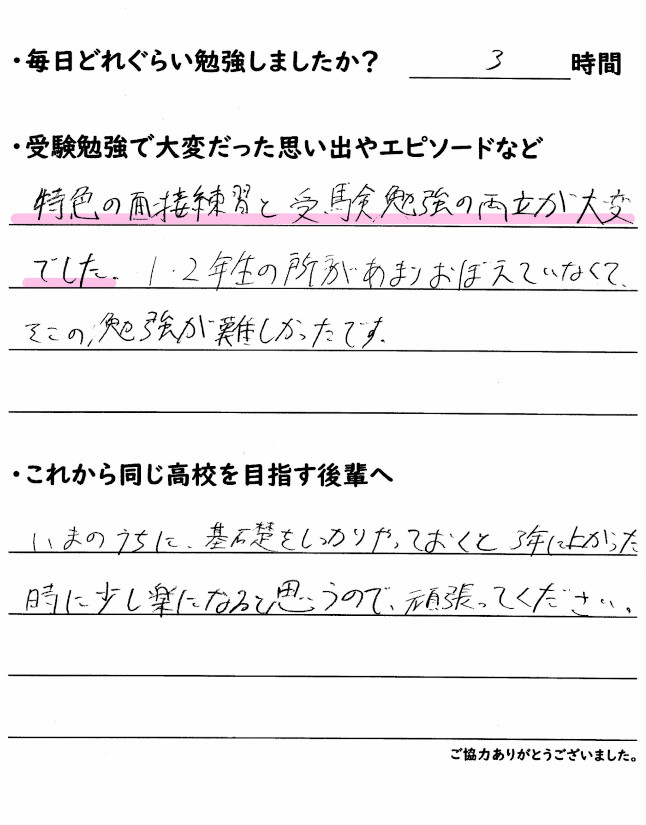 ・毎日どれぐらい勉強しましたか？ 3 時間
・受験勉強で大変だった思い出やエピソードなど
特色の面接練習と受験勉強の両立が大変
でした。1・2年生の所があまりおぼえていなくて、
そこの勉強が難しかったです。
・これから同じ高校を目指す後輩へ
いまのうちに、基礎をしっかりやっておくと3年に上がった
時に少し楽になると思うので、頑張ってください。
ご協力ありがとうございました。